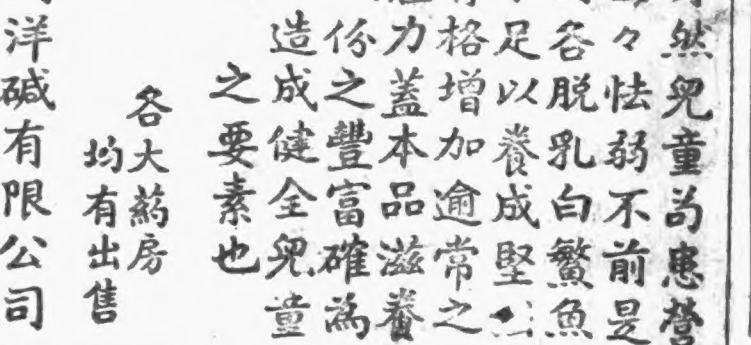 然兒童尚患營
々怯弱不前是
各脱乳白鰵魚
足以養成堅
格增加逾常之
力蓋本品滋養
份之豐富確為
造成健全兒童
之要素也
各大藥房
均有出售
洋碱有限公司